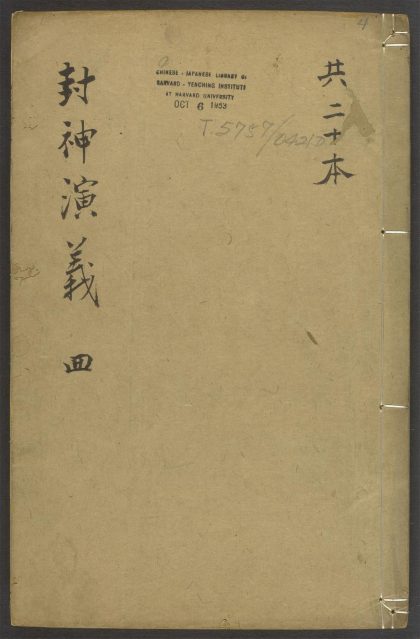 共二十本
封神演義 四
4
CHINESE - JAPANESE LIBRARY OF
HARVARD - YENCHING INSTITUTE
AT HARVARD UNIVERSITY
OCT 6 1953